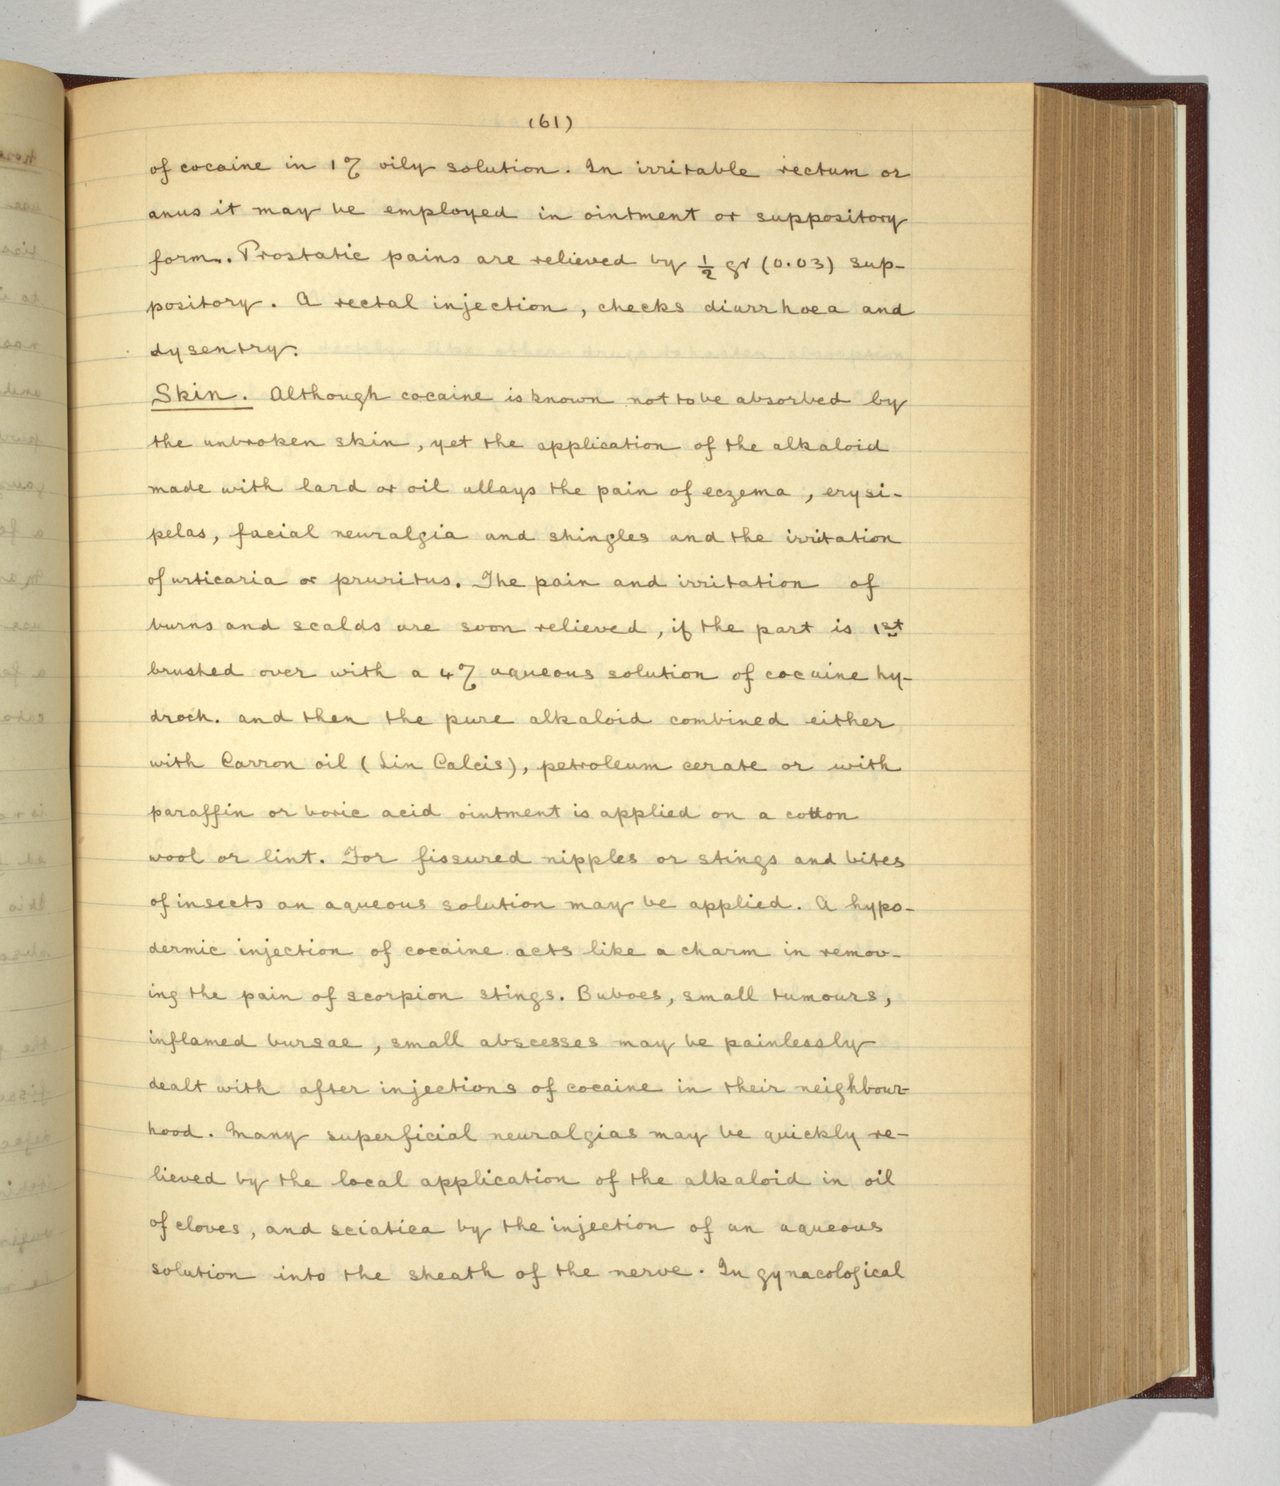 (61)
of cocaine in 1% oily solution. In irritable rectum or
anus it may be employed in ointment or suppository
form. Prostatic pains are relieved by ½ gr (0.03) sup-
pository. A rectal injection, checks diarrhoea and
dysentry.
Skin. Although cocaine is known not to be absorbed by
the unbroken skin, yet the application of the alkaloid
made with lard or oil allays the pain of eczema, erysi-
pelas, facial neuralgia and shingles and the irritation
of urticaria or pruritus. The pain and irritation of
burns and scalds are soon relieved, if the part is 1st
brushed over with a 4% aqueous solution of cocaine hy-
droch. and then the pure alkaloid combined either
with Carron oil (Lin Calcis), petroleum cerate or with
paraffin or boric acid ointment is applied on a cotton
wool or lint. For fissured nipples or stings and bites
of insects an aqueous solution may be applied. A hypo-
dermic injection of cocaine acts like a charm in remov-
ing the pain of scorpion stings. Buboes, small tumours,
inflamed bursae, small abscesses may be painlessly
dealt with after injections of cocaine in their neighbour-
hood. Many superficial neuralgias may be quickly re-
lieved by the local application of the alkaloid in oil
of cloves, and sciatica by the injection of an aqueous
solution into the sheath of the nerve. In gynacological